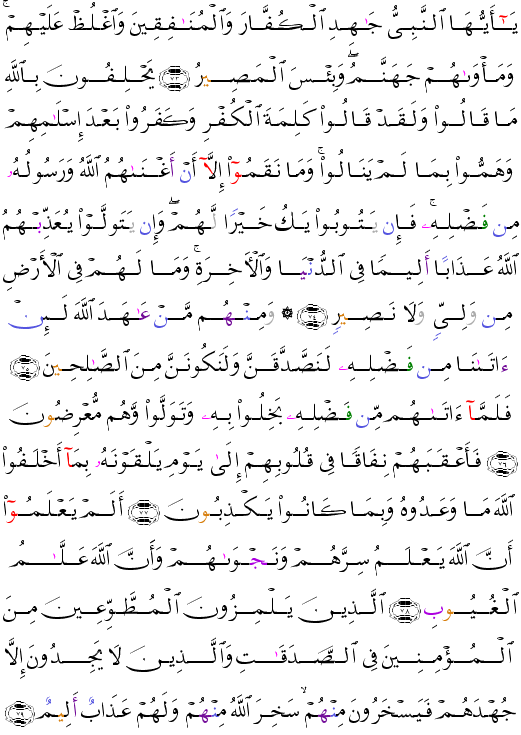 يَـٰٓأَيُّهَا ٱلنَّبِىُّ جَـٰهِدِ ٱلْكُفَّارَ وَٱلْمُنَـٰفِقِينَ وَٱغْلُظْ عَلَيْهِمْ ۚ
وَمَأْوَىٰهُمْ جَهَنَّمُ ۖ وَبِئْسَ ٱلْمَصِيرُ ﴿٧٣﴾ يَحْلِفُونَ بِٱللَّهِ
مَا قَالُوا۟ وَلَقَدْ قَالُوا۟ كَلِمَةَ ٱلْكُفْرِ وَكَفَرُوا۟ بَعْدَ إِسْلَـٰمِهِمْ
وَهَمُّوا۟ بِمَا لَمْ يَنَالُوا۟ ۚ وَمَا نَقَمُوٓا۟ إِلَّآ أَنْ أَغْنَىٰهُمُ ٱللَّهُ وَرَسُولُهُۥ
مِن فَضْلِهِۦ ۚ فَإِن يَتُوبُوا۟ يَكُ خَيْرًا لَّهُمْ ۖ وَإِن يَتَوَلَّوْا۟ يُعَذِّبْهُمُ
ٱللَّهُ عَذَابًا أَلِيمًا فِى ٱلدُّنْيَا وَٱلْـَٔاخِرَةِ ۚ وَمَا لَهُمْ فِى ٱلْأَرْضِ
مِن وَلِىٍّ وَلَا نَصِيرٍ ﴿٧٤﴾ ۞ وَمِنْهُم مَّنْ عَـٰهَدَ ٱللَّهَ لَئِنْ
ءَاتَىٰنَا مِن فَضْلِهِۦ لَنَصَّدَّقَنَّ وَلَنَكُونَنَّ مِنَ ٱلصَّـٰلِحِينَ ﴿٧٥﴾
فَلَمَّآ ءَاتَىٰهُم مِّن فَضْلِهِۦ بَخِلُوا۟ بِهِۦ وَتَوَلَّوا۟ وَّهُم مُّعْرِضُونَ
﴿٧٦﴾ فَأَعْقَبَهُمْ نِفَاقًا فِى قُلُوبِهِمْ إِلَىٰ يَوْمِ يَلْقَوْنَهُۥ بِمَآ أَخْلَفُوا۟
ٱللَّهَ مَا وَعَدُوهُ وَبِمَا كَانُوا۟ يَكْذِبُونَ ﴿٧٧﴾ أَلَمْ يَعْلَمُوٓا۟
أَنَّ ٱللَّهَ يَعْلَمُ سِرَّهُمْ وَنَجْوَىٰهُمْ وَأَنَّ ٱللَّهَ عَلَّـٰمُ
ٱلْغُيُوبِ ﴿٧٨﴾ ٱلَّذِينَ يَلْمِزُونَ ٱلْمُطَّوِّعِينَ مِنَ
ٱلْمُؤْمِنِينَ فِى ٱلصَّدَقَـٰتِ وَٱلَّذِينَ لَا يَجِدُونَ إِلَّا
جُهْدَهُمْ فَيَسْخَرُونَ مِنْهُمْ ۙ سَخِرَ ٱللَّهُ مِنْهُمْ وَلَهُمْ عَذَابٌ أَلِيمٌ ﴿٧٩﴾